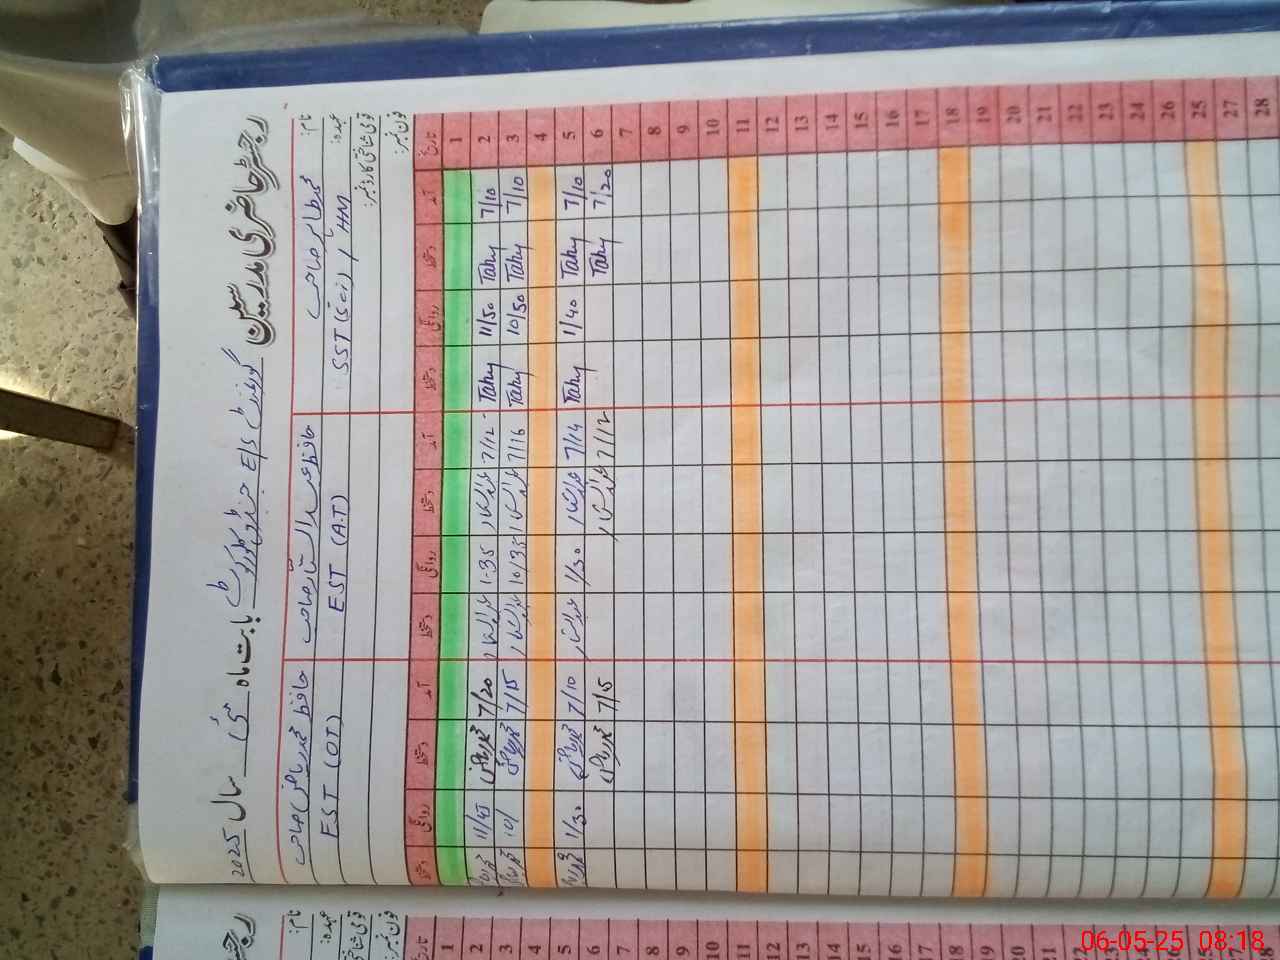 رجسٹر حاضری مدرسین
گورنمنٹ E/S بابت ماہ مئی سال 2025
نام: طاہر صاحب
عہدہ: SST (Sci) / HM
قومی شناختی کارڈ نمبر:
فون نمبر:
حافظ عبدالستار صاحب
EST (A.T)
حافظ محمد ریاض صاحب
EST (OT)
تاریخ آمد دستخط روانگی دستخط آمد دستخط روانگی دستخط آمد دستخط روانگی دستخط
1
2 7/10 Tahy 11/50 Tahy 7/12 1-35 7/20 11/45
3 7/10 Tahy 10/50 Tahy 7/16 10/35 7/15 10/
4
5 7/10 Tahy 1/40 Tahy 7/14 1/30 7/10 1/30
6 7/20 Tahy 7/12 7/15
7
8
9
10
11
12
13
14
15
16
17
18
19
20
21
22
23
24
26
25
27
28
رجسٹر
نام:
عہدہ:
قومی شنا
فون نمبر:
تاریخ
1
2
3
4
5
6
7
8
9
10
11
12
13
14
15
16
17
18
19
20
21
22
23
24
25
26
27
28
06-05-25 08:18